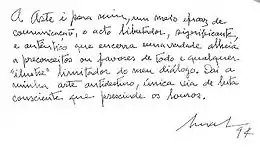 A Arte é para mim, um modo eficaz de
comunicação, o acto libertador, significante,
e autêntico que encerra uma verdade alheia
a preconceitos ou favores de todo e qualquer
"ilustre" limitador do meu diálogo. Daí a
minha arte antidestino, única via de luta
consciente que prescinde os louros.
94